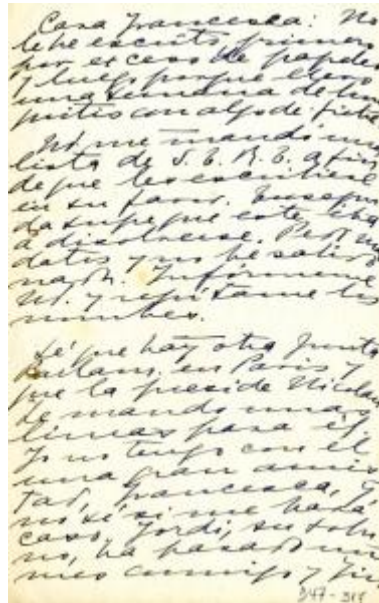 Cara Francesca: No
le he escrito primero
por exceso de papeles
y luego porque llevo
una semana de
con algo de fiebre
Ud. me mandó una
lista de S. E. R. E. a fin
de que les escribiese
en su favor. Enseguida
supe que este iba
a disolverse. Pedí
datos y no he sabido
nada. Infórmeme
Ud. y repítame los
nombres.
Sé que hay otra Junta
en Paris y
que la preside Nicolau
Le mando unas
líneas para él.
Yo no tengo con él
una gran amis
tad, Francesca, y
no sé si me hará
caso. Jordi, su sobri
no, ha pasado un
mes conmigo y
947-318